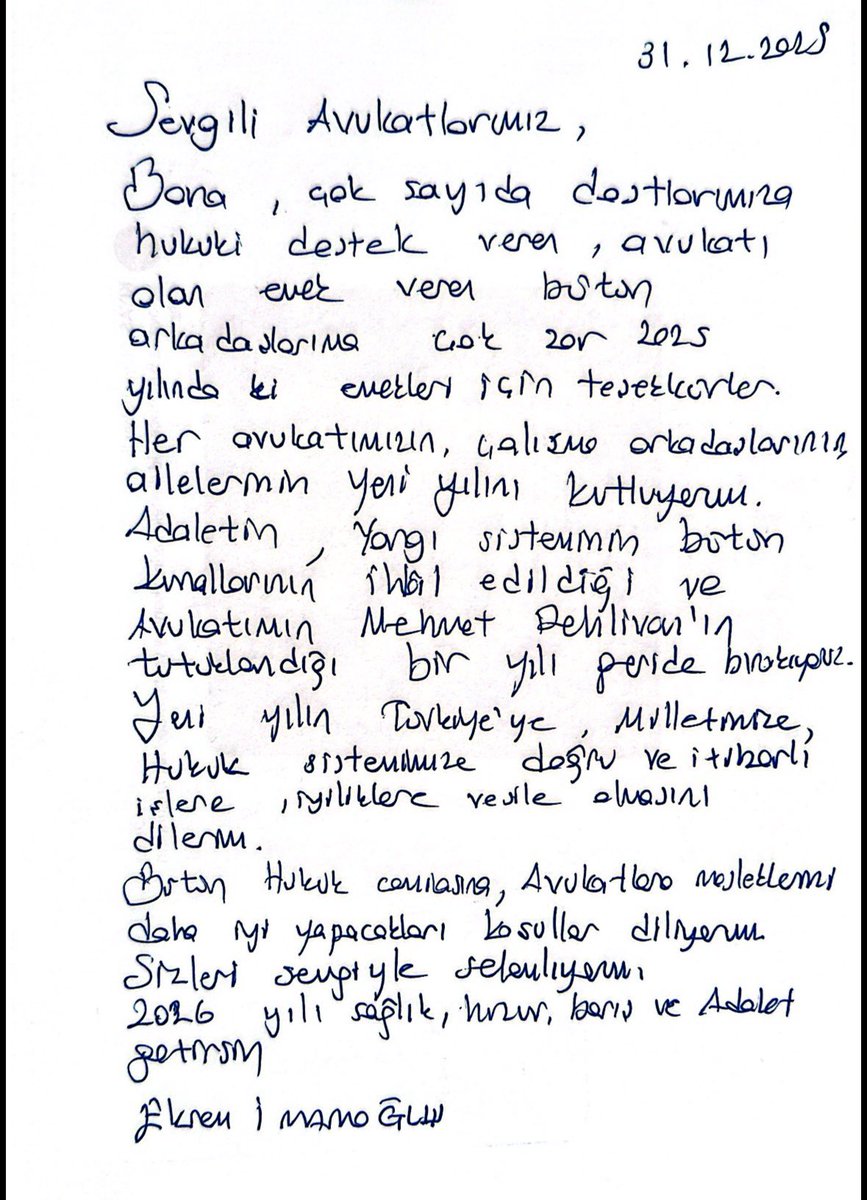 31.12.2025
Sevgili Avukatlarımız,
Bana, çok sayıda dostlarımıza
hukuki destek veren, avukatı
olan emek veren bütün
arkadaşlarıma çok zor 2025
yılında ki emekleri için teşekkürler.
Her avukatımızın, çalışma arkadaşlarının,
ailelerinin yeni yılını kutluyorum.
Adaletin, Yargı sisteminin bütün
kurallarının ihlâl edildiği ve
Avukatımın Mehmet Pehlivan'ın
tutuklandığı bir yılı geride bırakıyoruz.
Yeni yılın Türkiye'ye, Milletimize,
Hukuk sistemimize doğru ve itibarlı
işlere, iyiliklere vesile olmasını
dilerim.
Bütün Hukuk camiasına, Avukatlara mesleklerini
daha iyi yapacakları koşullar diliyorum.
Sizleri sevgiyle selamlıyorum
2026 yılı sağlık, huzur, barış ve Adalet
getirsin
Ekrem İmamoğlu